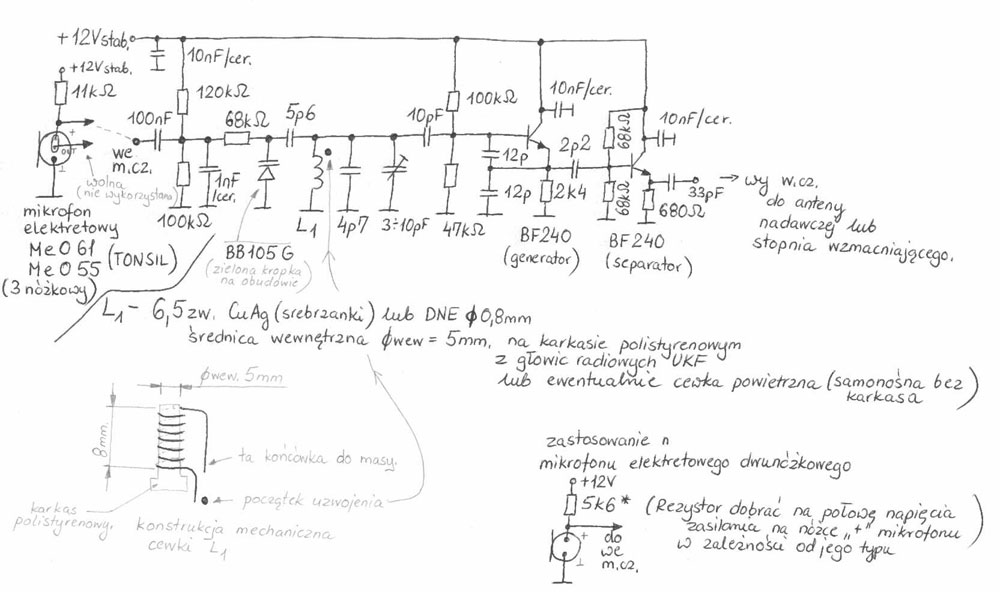 +12Vstab.
+12Vstab.
11kΩ
10nF/cer.
120kΩ
100nF
we
m.cz.
68kΩ
5p6
10pF
100kΩ
10nF/cer.
10nF/cer.
68kΩ
2p2
12p
12p
2k4
68kΩ
680Ω
33pF
→ wy w.cz.
do anteny
nadawczej lub
stopnia wzmacniającego.
+
OUT
⊥
wolna
(nie wykorzystana)
1nF
/cer.
100kΩ
BB105G
(zielona kropka
na obudowie)
L1
4p7
3÷10pF
47kΩ
BF240
(generator)
BF240
(separator)
mikrofon
elektretowy
MeO 61
MeO 55 (TONSIL)
(3 nóżkowy)
L1 - 6,5 zw. CuAg (srebrzanki) lub DNE ϕ0,8mm
średnica wewnętrzna ϕwew = 5mm, na karkasie polistyrenowym
z głowic radiowych UKF
lub ewentualnie cewka powietrzna (samonośna bez
karkasa)
ϕwew. 5mm
8mm.
ta końcówka do masy.
początek uzwojenia
karkas
polistyrenowy.
konstrukcja mechaniczna
cewki L1
zastosowanie n
mikrofonu elektretowego dwunóżkowego
+12V
5k6* (Rezystor dobrać na połowę napięcia
zasilania na nóżce „+" mikrofonu
w zależności od jego typu)
+
⊥
do
we
m.cz.